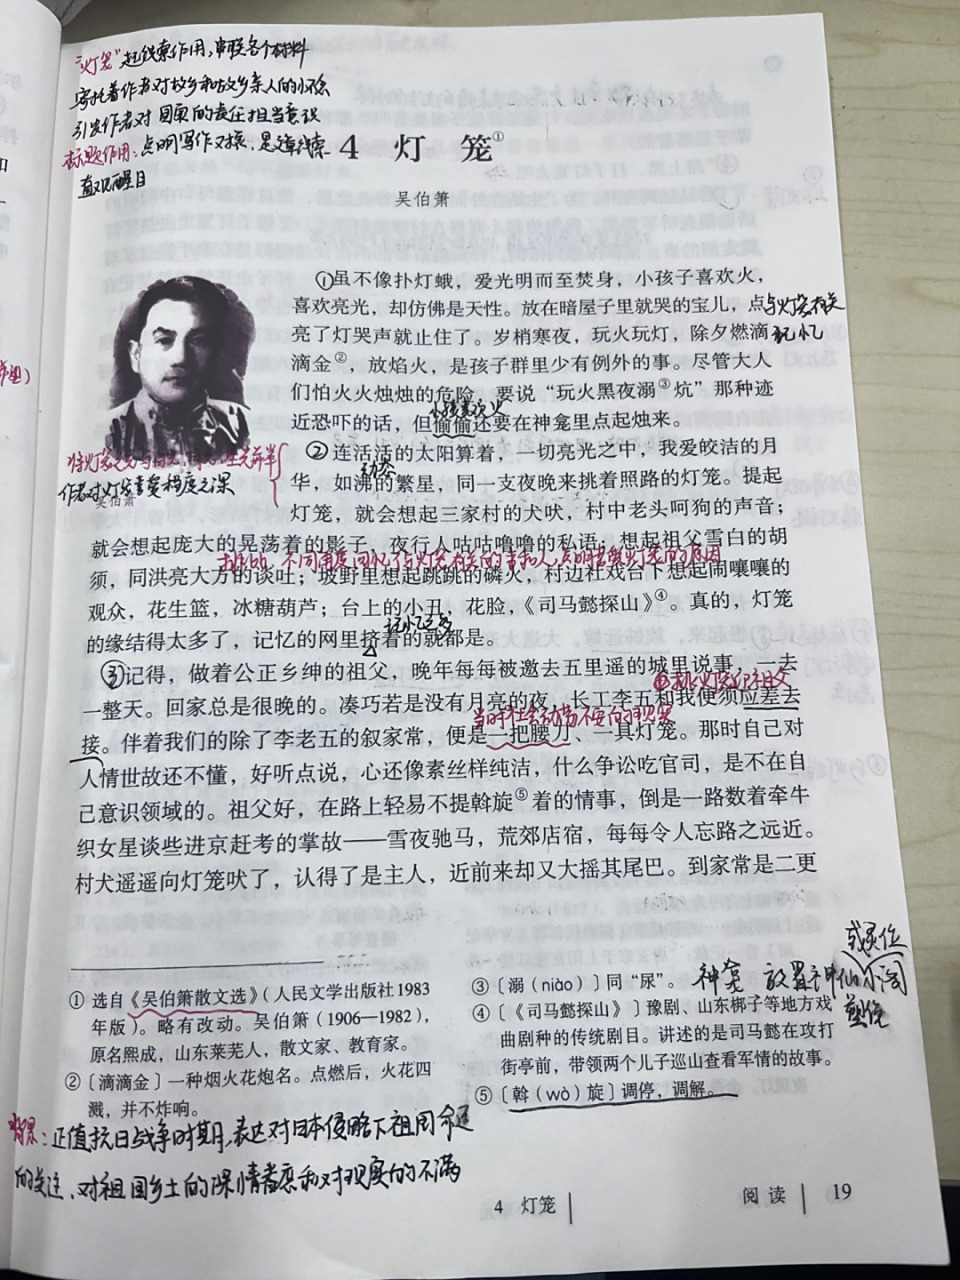 “灯笼”起线索作用,串联各个材料
寄托着作者对故乡和故乡亲人的小念
引发作者对国家的责任担当意识
标题作用:点明写作对象,是文章线索
直观醒目
4 灯笼①
吴伯箫
①虽不像扑灯蛾，爱光明而至焚身，小孩子喜欢火，
喜欢亮光，却仿佛是天性。放在暗屋子里就哭的宝儿，点
与灯笼有关
亮了灯哭声就止住了。岁梢寒夜，玩火玩灯，除夕燃滴
记忆
滴金②，放焰火，是孩子群里少有例外的事。尽管大人
们怕火火烛烛的危险，要说“玩火黑夜溺③炕”那种迹
小孩喜欢火
近恐吓的话，但偷偷还要在神龛里点起烛来。
②连活活的太阳算着，一切亮光之中，我爱皎洁的月
动态
华，如沸的繁星，同一支夜晚来挑着照路的灯笼。提起
作者对灯笼喜爱程度之深
吴伯箫
灯笼，就会想起三家村的犬吠，村中老头呵狗的声音；
就会想起庞大的晃荡着的影子，夜行人咕咕噜噜的私语；想起祖父雪白的胡
不同角度回忆了与灯笼有关的事和人,点明喜爱灯笼的原因
须，同洪亮大方的谈吐；坡野里想起跳跳的磷火，村边社戏台下想起闹嚷嚷的
观众，花生篮，冰糖葫芦；台上的小丑，花脸，《司马懿探山》④。真的，灯笼
记忆之多
的缘结得太多了，记忆的网里挤着的就都是。
③记得，做着公正乡绅的祖父，晚年每每被邀去五里遥的城里说事，一去
①挑灯笼迎祖父
一整天。回家总是很晚的。凑巧若是没有月亮的夜，长工李五和我便须应差去
当时社会动荡不安的现实
接。伴着我们的除了李老五的叙家常，便是一把腰刀、一具灯笼。那时自己对
人情世故还不懂，好听点说，心还像素丝样纯洁，什么争讼吃官司，是不在自
己意识领域的。祖父好，在路上轻易不提斡旋⑤着的情事，倒是一路数着牵牛
织女星谈些进京赶考的掌故——雪夜驰马，荒郊店宿，每每令人忘路之远近。
村犬遥遥向灯笼吠了，认得了是主人，近前来却又大摇其尾巴。到家常是二更
① 选自《吴伯箫散文选》（人民文学出版社1983
年版）。略有改动。吴伯箫（1906—1982），
原名熙成，山东莱芜人，散文家、教育家。
② 〔滴滴金〕一种烟火花炮名。点燃后，火花四
溅，并不炸响。
③〔溺（niào）〕同“尿”。
神龛 放置神仙的阁
或灵位
④〔《司马懿探山》〕豫剧、山东梆子等地方戏
曲剧种的传统剧目。讲述的是司马懿在攻打
街亭前，带领两个儿子巡山查看军情的故事。
⑤〔斡（wò）旋〕调停，调解。
背景:正值抗日战争时期,表达对日本侵略下祖国命运
的关注、对祖国乡土的深情眷恋和对现实的不满
4 灯笼
阅读 19